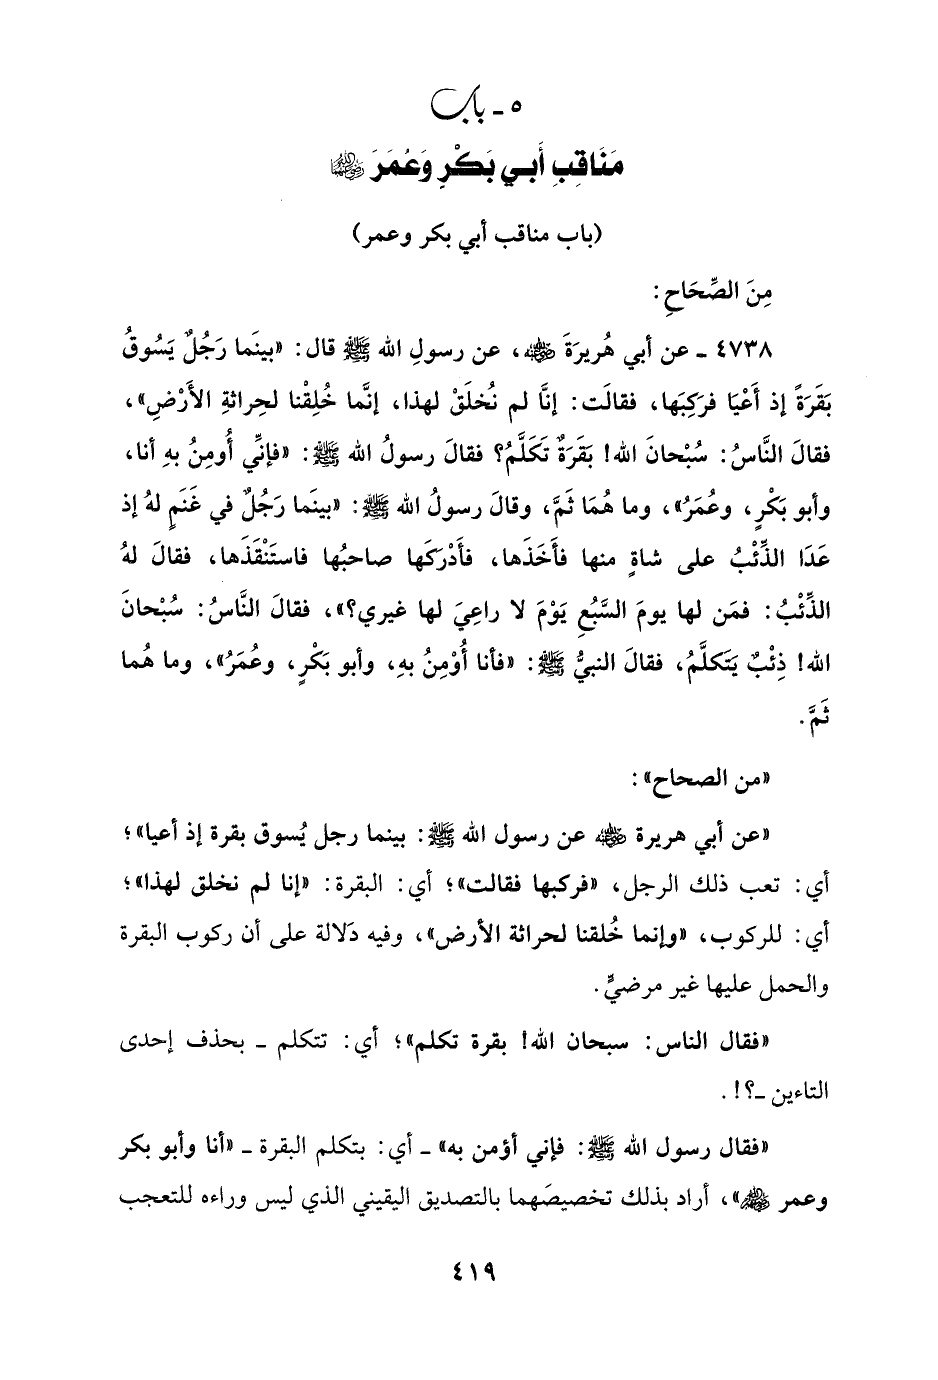 ٥ - باب
مَنَاقِبِ أَبي بَكْرٍ وَعُمَرَ ﵄
(باب مناقب أبي بكر وعمر)
مِنَ الصِّحَاحِ:
٤٧٣٨ ـ عن أبي هُريرَةَ ﵁، عن رسولِ الله ﷺ قال: «بينَما رَجُلٌ يَسُوقُ
بَقَرَةً إذ أَعْيَا فرَكِبَها، فقالَت: إنَّا لم نُخلَقْ لهذا، إنَّما خُلِقْنا لحِراثةِ الأَرْضِ»،
فقالَ النَّاسُ: سُبْحانَ الله! بَقَرَةٌ تَكَلَّمُ؟ فقالَ رسولُ الله ﷺ: «فإنِّي أُومِنُ بهِ أنا،
وأبو بَكْرٍ، وعُمَرُ»، وما هُمَا ثَمَّ، وقالَ رسولُ الله ﷺ: «بينَما رَجُلٌ في غَنَمٍ لهُ إذ
عَدَا الذِّئْبُ على شاةٍ منها فأَخَذَها، فأَدْرَكَها صاحبُها فاستَنْقَذَها، فقالَ لهُ
الذِّئْبُ: فمَن لها يومَ السَّبُعِ يَوْمَ لا راعِيَ لها غيري؟»، فقالَ النَّاسُ: سُبْحانَ
الله! ذِئْبٌ يَتَكلَّمُ، فقالَ النبيُّ ﷺ: «فأنا أُوْمِنُ بهِ، وأبو بَكْرٍ، وعُمَرُ»، وما هُما
ثَمَّ.
«من الصحاح»:
«عن أبي هريرة ﵁ عن رسول الله ﷺ: بينما رجل يُسوق بقرة إذ أعيا»؛
أي: تعب ذلك الرجل، «فركبها فقالت»؛ أي: البقرة: «إنا لم نخلق لهذا»؛
أي: للركوب، «وإنما خُلقنا لحراثة الأرض»، وفيه دَلالة على أن ركوب البقرة
والحمل عليها غير مرضيٍّ.
«فقال الناس: سبحان الله! بقرة تكلم»؛ أي: تتكلم ـ بحذف إحدى
التاءين ـ؟!.
«فقال رسول الله ﷺ: فإني أؤمن به» ـ أي: بتكلم البقرة ـ «أنا وأبو بكر
وعمر ﵃»، أراد بذلك تخصيصَهما بالتصديق اليقيني الذي ليس وراءه للتعجب
٤١٩